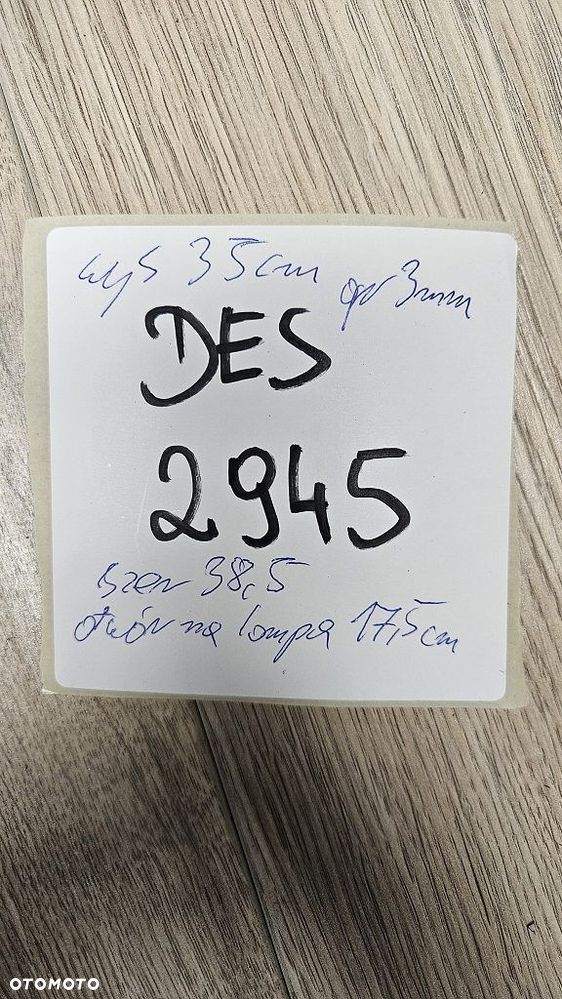 wys 35cm gr 3mm
DES
2945
szer 38,5
otwór na lampa 17,5cm
OTOMOTO